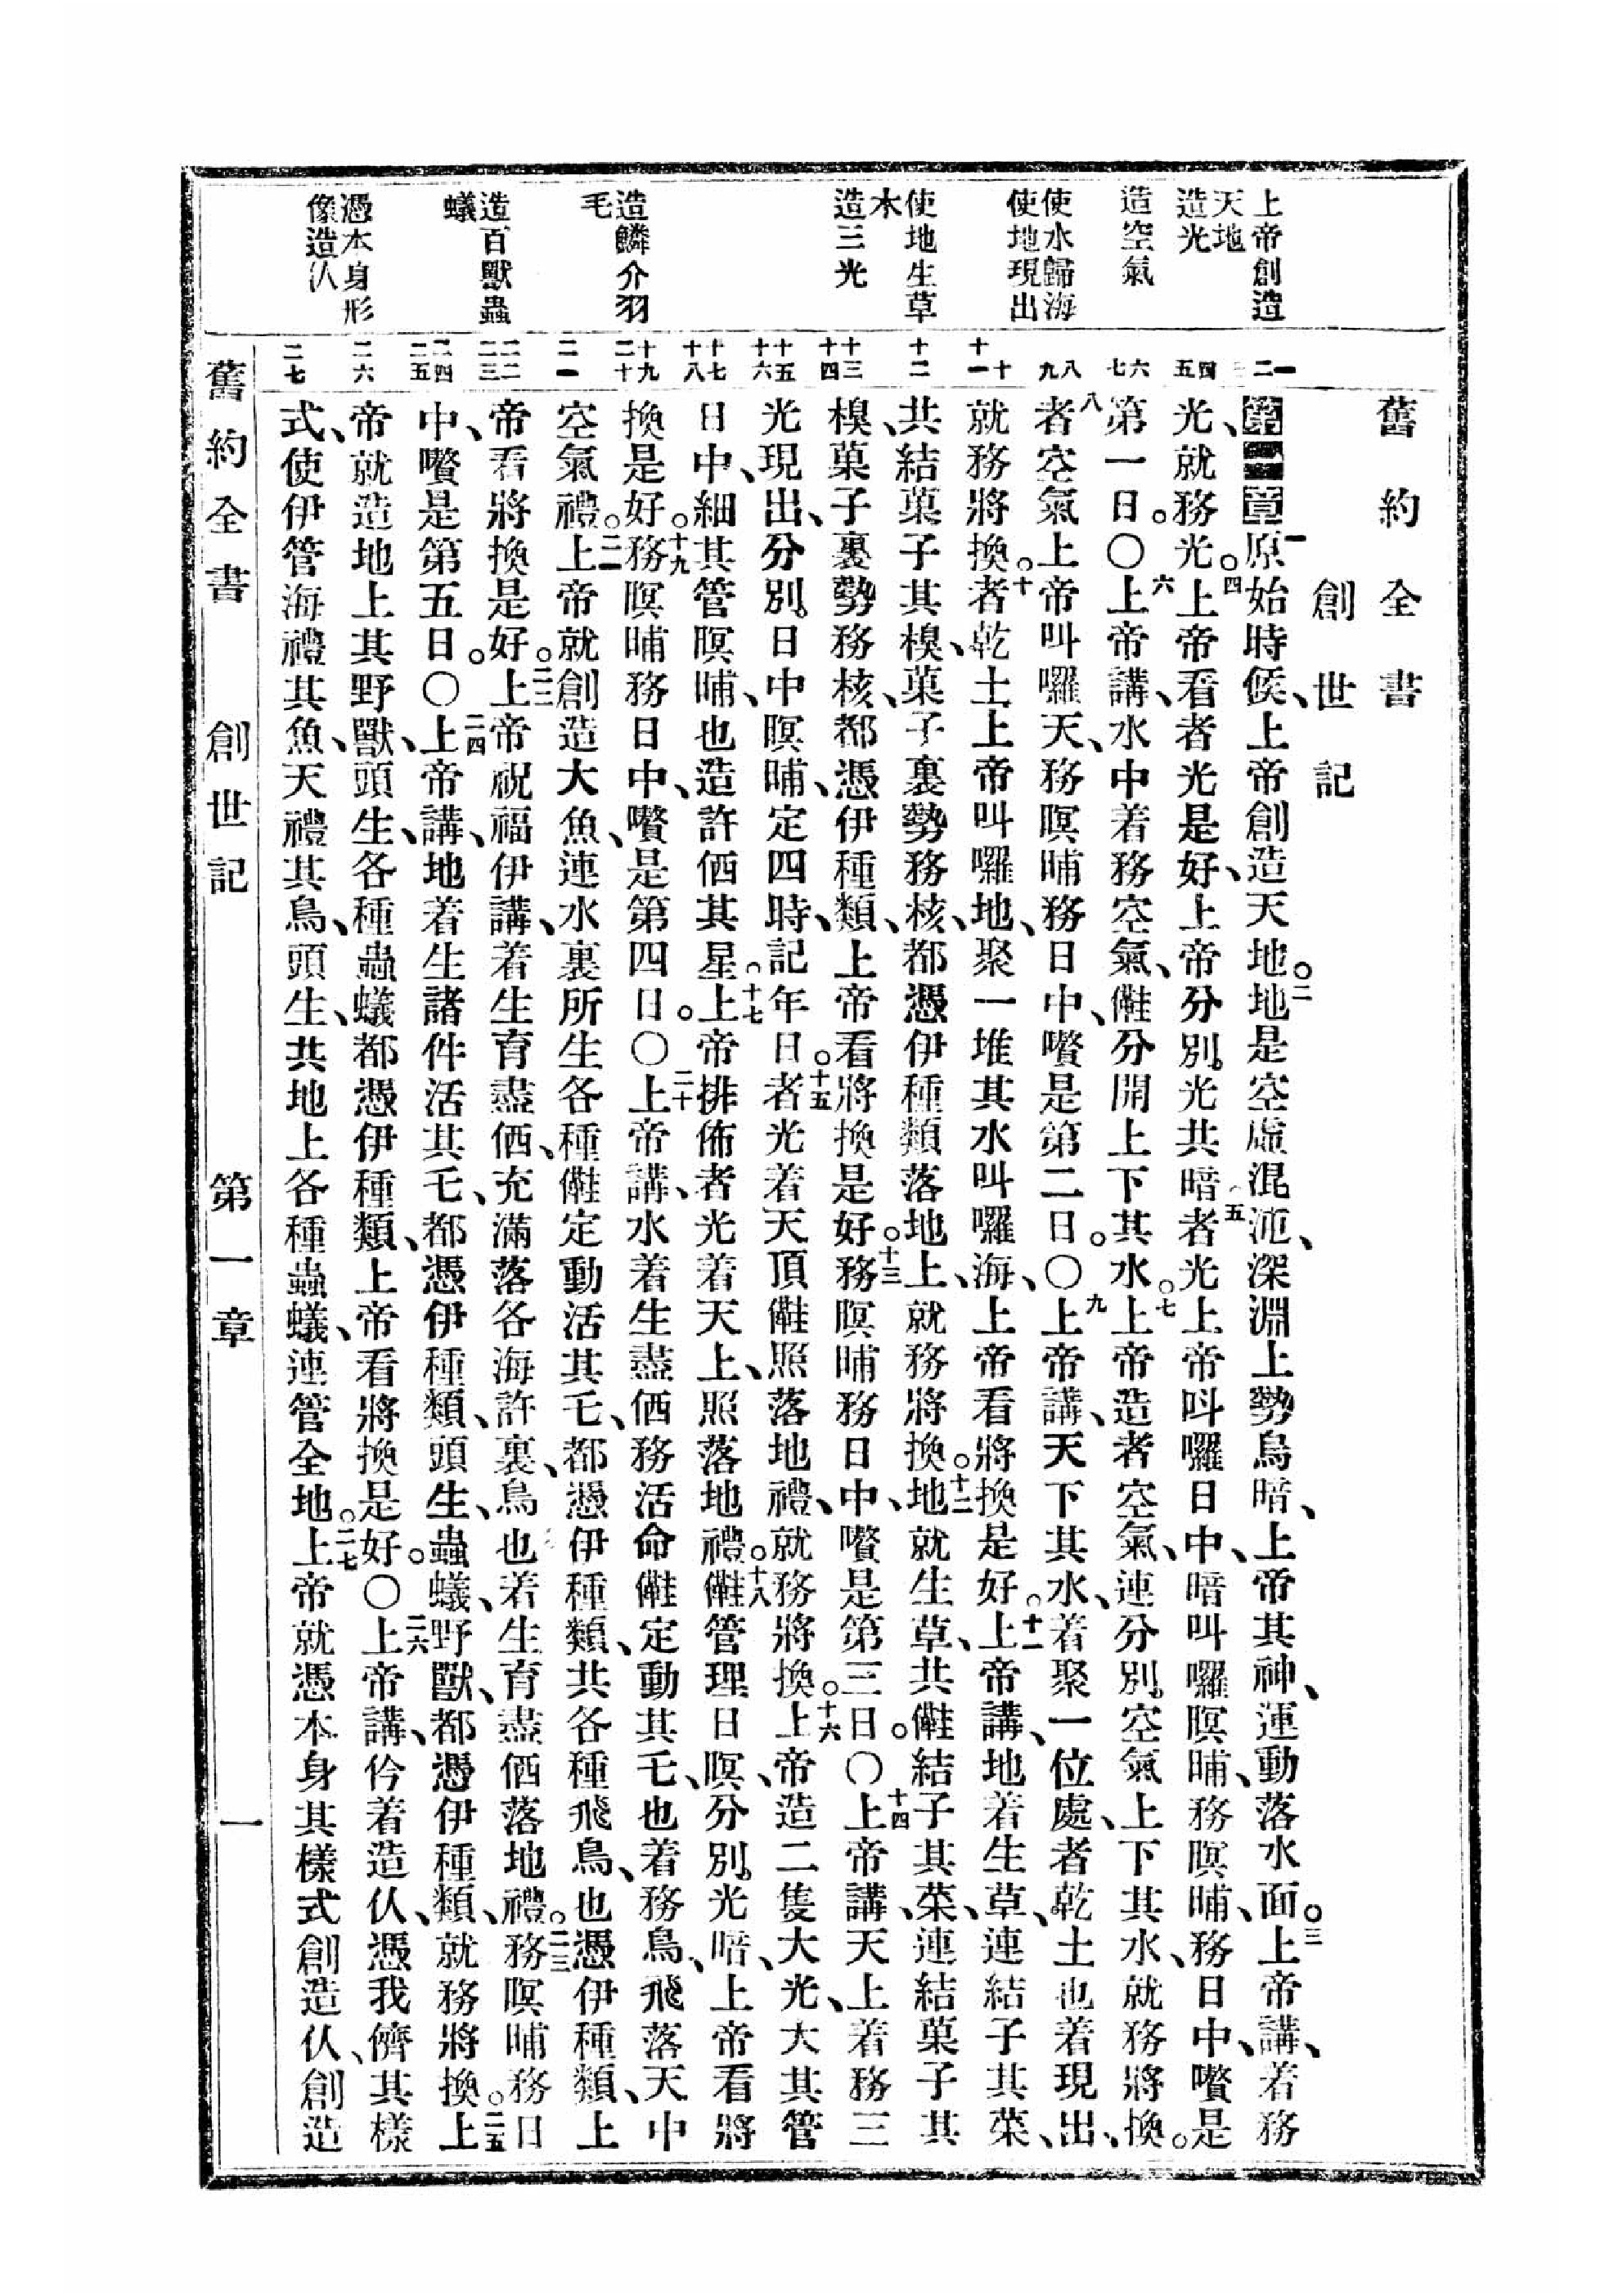 舊約全書
創世記
上帝創造天地
造光
造空氣
使水歸海使地現出
使地生草木
造三光
造鱗介羽毛
造百獸蟲蟻
憑本身形像造仈
一 二 三 四 五 六 七 八 九 十 十一 十二 十三 十四 十五 十六 十七 十八 十九 二十 二一 二二 二三 二四 二五 二六 二七
第一章 一原始時候、上帝創造天地。二地是空虛混沌、深淵上勢烏暗、上帝其神、運動落水面。三上帝講、着務
光、就務光。四上帝看者光是好、上帝分別光共暗。五者光上帝呌囉日中、暗叫囉暝晡、務暝晡、務日中、囋是
第一日。〇六上帝講、水中着務空氣、分開上下其水。七上帝造者空氣、連分別空氣上下其水、就務將換。
八者空氣上帝叫囉天、務暝晡務日中、囋是第二日。〇九上帝講、天下其水、着聚一位處、者乾土也着現出、
就務將換。十者乾土、上帝叫囉地、聚一堆其水叫囉海、上帝看將換是好。十一上帝講、地着生草、連結子其菜、
共結菓子其、菓子裏勢務核、都憑伊種類落地上、就務將換。十二地就生草、共結子其菜、連結菓子其
、菓子裏勢務核、都憑伊種類、上帝看將換是好。十三務暝晡務日中、囋是第三日。〇十四上帝講、天上着務三
光現出、分別日中暝晡、定四時、記年日。十五者光着天頂照落地禮、就務將換。十六上帝造二隻大光、大其管
日中、細其管暝晡、也造許価其星。十七上帝排佈者光着天上、照落地禮。十八管理日暝、分別光暗、上帝看將
換是好。十九務暝晡務日中、囋是第四日。〇二十上帝講、水着生盡価務活命定動其乇、也着務鳥、飛落天中
空氣禮。二一上帝就創造大魚、連水裏所生各種定動活其乇、都憑伊種類、共各種飛鳥、也憑伊種類、上
帝看將換是好。二二上帝祝福伊講、着生育盡価、充滿落各海許裏、鳥也着生育盡価落地禮。二三務暝晡務日
中、囋是第五日。〇二四上帝講、地着生諸件活其乇、都憑伊種類、頭生、蟲蟻、野獸、都憑伊種類、就務將換。二五上
帝就造地上其野獸、頭生、各種蟲蟻、都憑伊種類、上帝看將換是好。〇二六上帝講、伶着造仈、憑我儕其樣
式、使伊管海禮其魚、天禮其鳥、頭生、共地上各種蟲蟻、連管全地。二七上帝就憑本身其樣式創造仈、創造
舊約全書　創世記　第一章　一